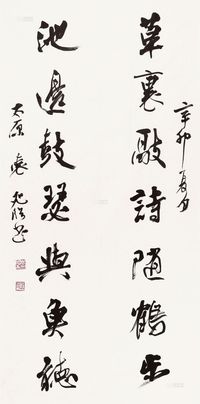 辛卯夏月
草裏敲詩隨鶴步
池邊鼓瑟與魚聽
太原 袁